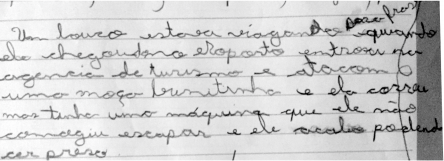 Um louco estava viajando para fras quando
ele chegandono eroporto entrou na
agencia de turismo e atacom o
uma moça bunitinha e ela correu
mas tinha uma máquina que ele não
comsegiu escapar e ele acabo podendo
cer preso